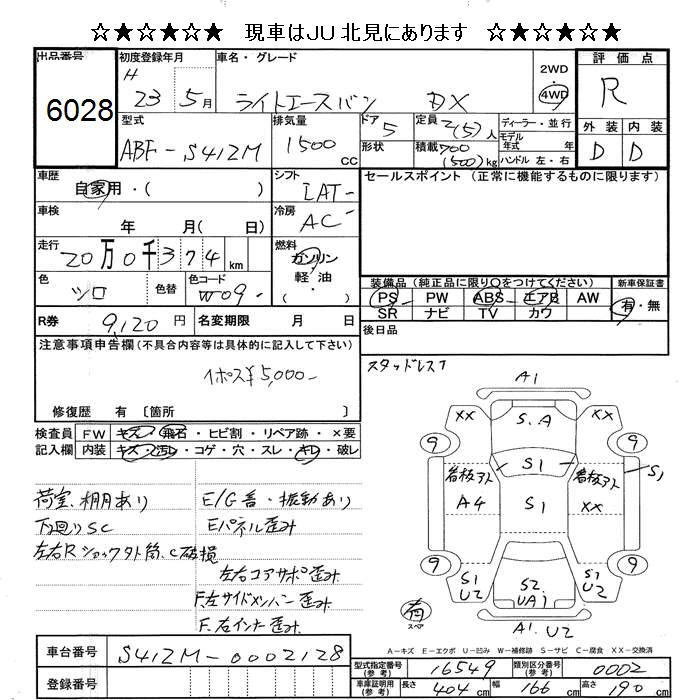 ☆★☆★☆ 現車はJU北見にあります ☆★☆★☆
出品番号
6028
初度登録年月
H 23 5月
車名・グレード
ライトエースバン DX
2WD
・
4WD
評価点
R
型式
ABF-S412M
排気量
1500 cc
ドア
5
形状
定員 2(5)人
積載 700 (500)kg
ディーラー・並行
モデル年式 年
ハンドル 左・右
外装 内装
D D
車歴
自家用・( )
シフト
IAT-
セールスポイント(正常に機能するものに限ります)
車検
年 月(日)
冷房
AC-
走行
20万0千374km
燃料
ガソリン
軽・油
・( )
色
シロ
色替
色コード
W09-
装備品(純正品に限り○をつけてください)
新車保証書
PS PW ABS エアB AW
有・無
SR ナビ TV カワ
R券 9,120円
名変期限 月 日
後日品
注意事項申告欄(不具合内容等は具体的に記入して下さい)
スタッドレス7
修復歴 有〔箇所 〕
検査員記入欄
FW キズ・飛石・ヒビ割・リペア跡・×要
内装 キズ・汚レ・コゲ・穴・スレ・キレ・破レ
荷室、棚用あり
下廻りSC
E/G音・振動あり
Eパネル歪み
左右Rショック外筒、C破損
左右コアサポ歪み
F.左サイドメンバー歪み
F.右インナー歪み
A1
XX
S.A
XX
9
9
S1
看板アト
A4
看板アト
XX
S1
S1
9
9
S1 U2
S2 UA1
S1 U2
A1. U2
有
スペア
A-キズ E-エクボ U-凹み W-補修跡 S-サビ C-腐食 XX-交換済
車台番号
S412M-0002128
登録番号
型式指定番号(参考)
16549
類別区分番号(参考)
0002
車庫証明用(参考)
長さ 404cm
幅 166cm
高さ 190cm